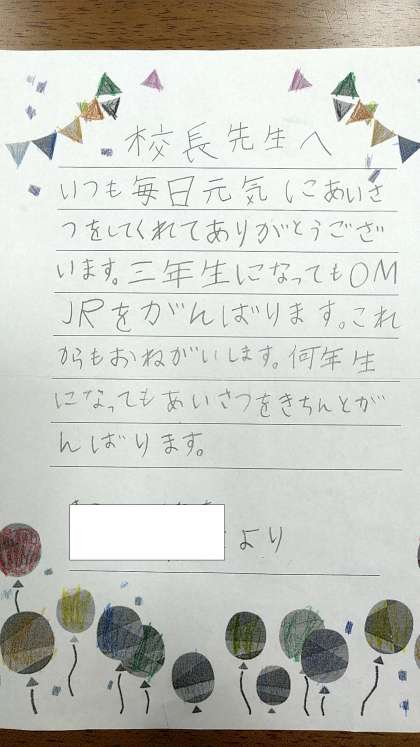 校長先生へ
いつも毎日元気にあいさ
つをしてくれてありがとうござ
います。三年生になってもOM
JRをがんばります。これ
からもおねがいします。何年生
になってもあいさつをきちんとが
んばります。
より